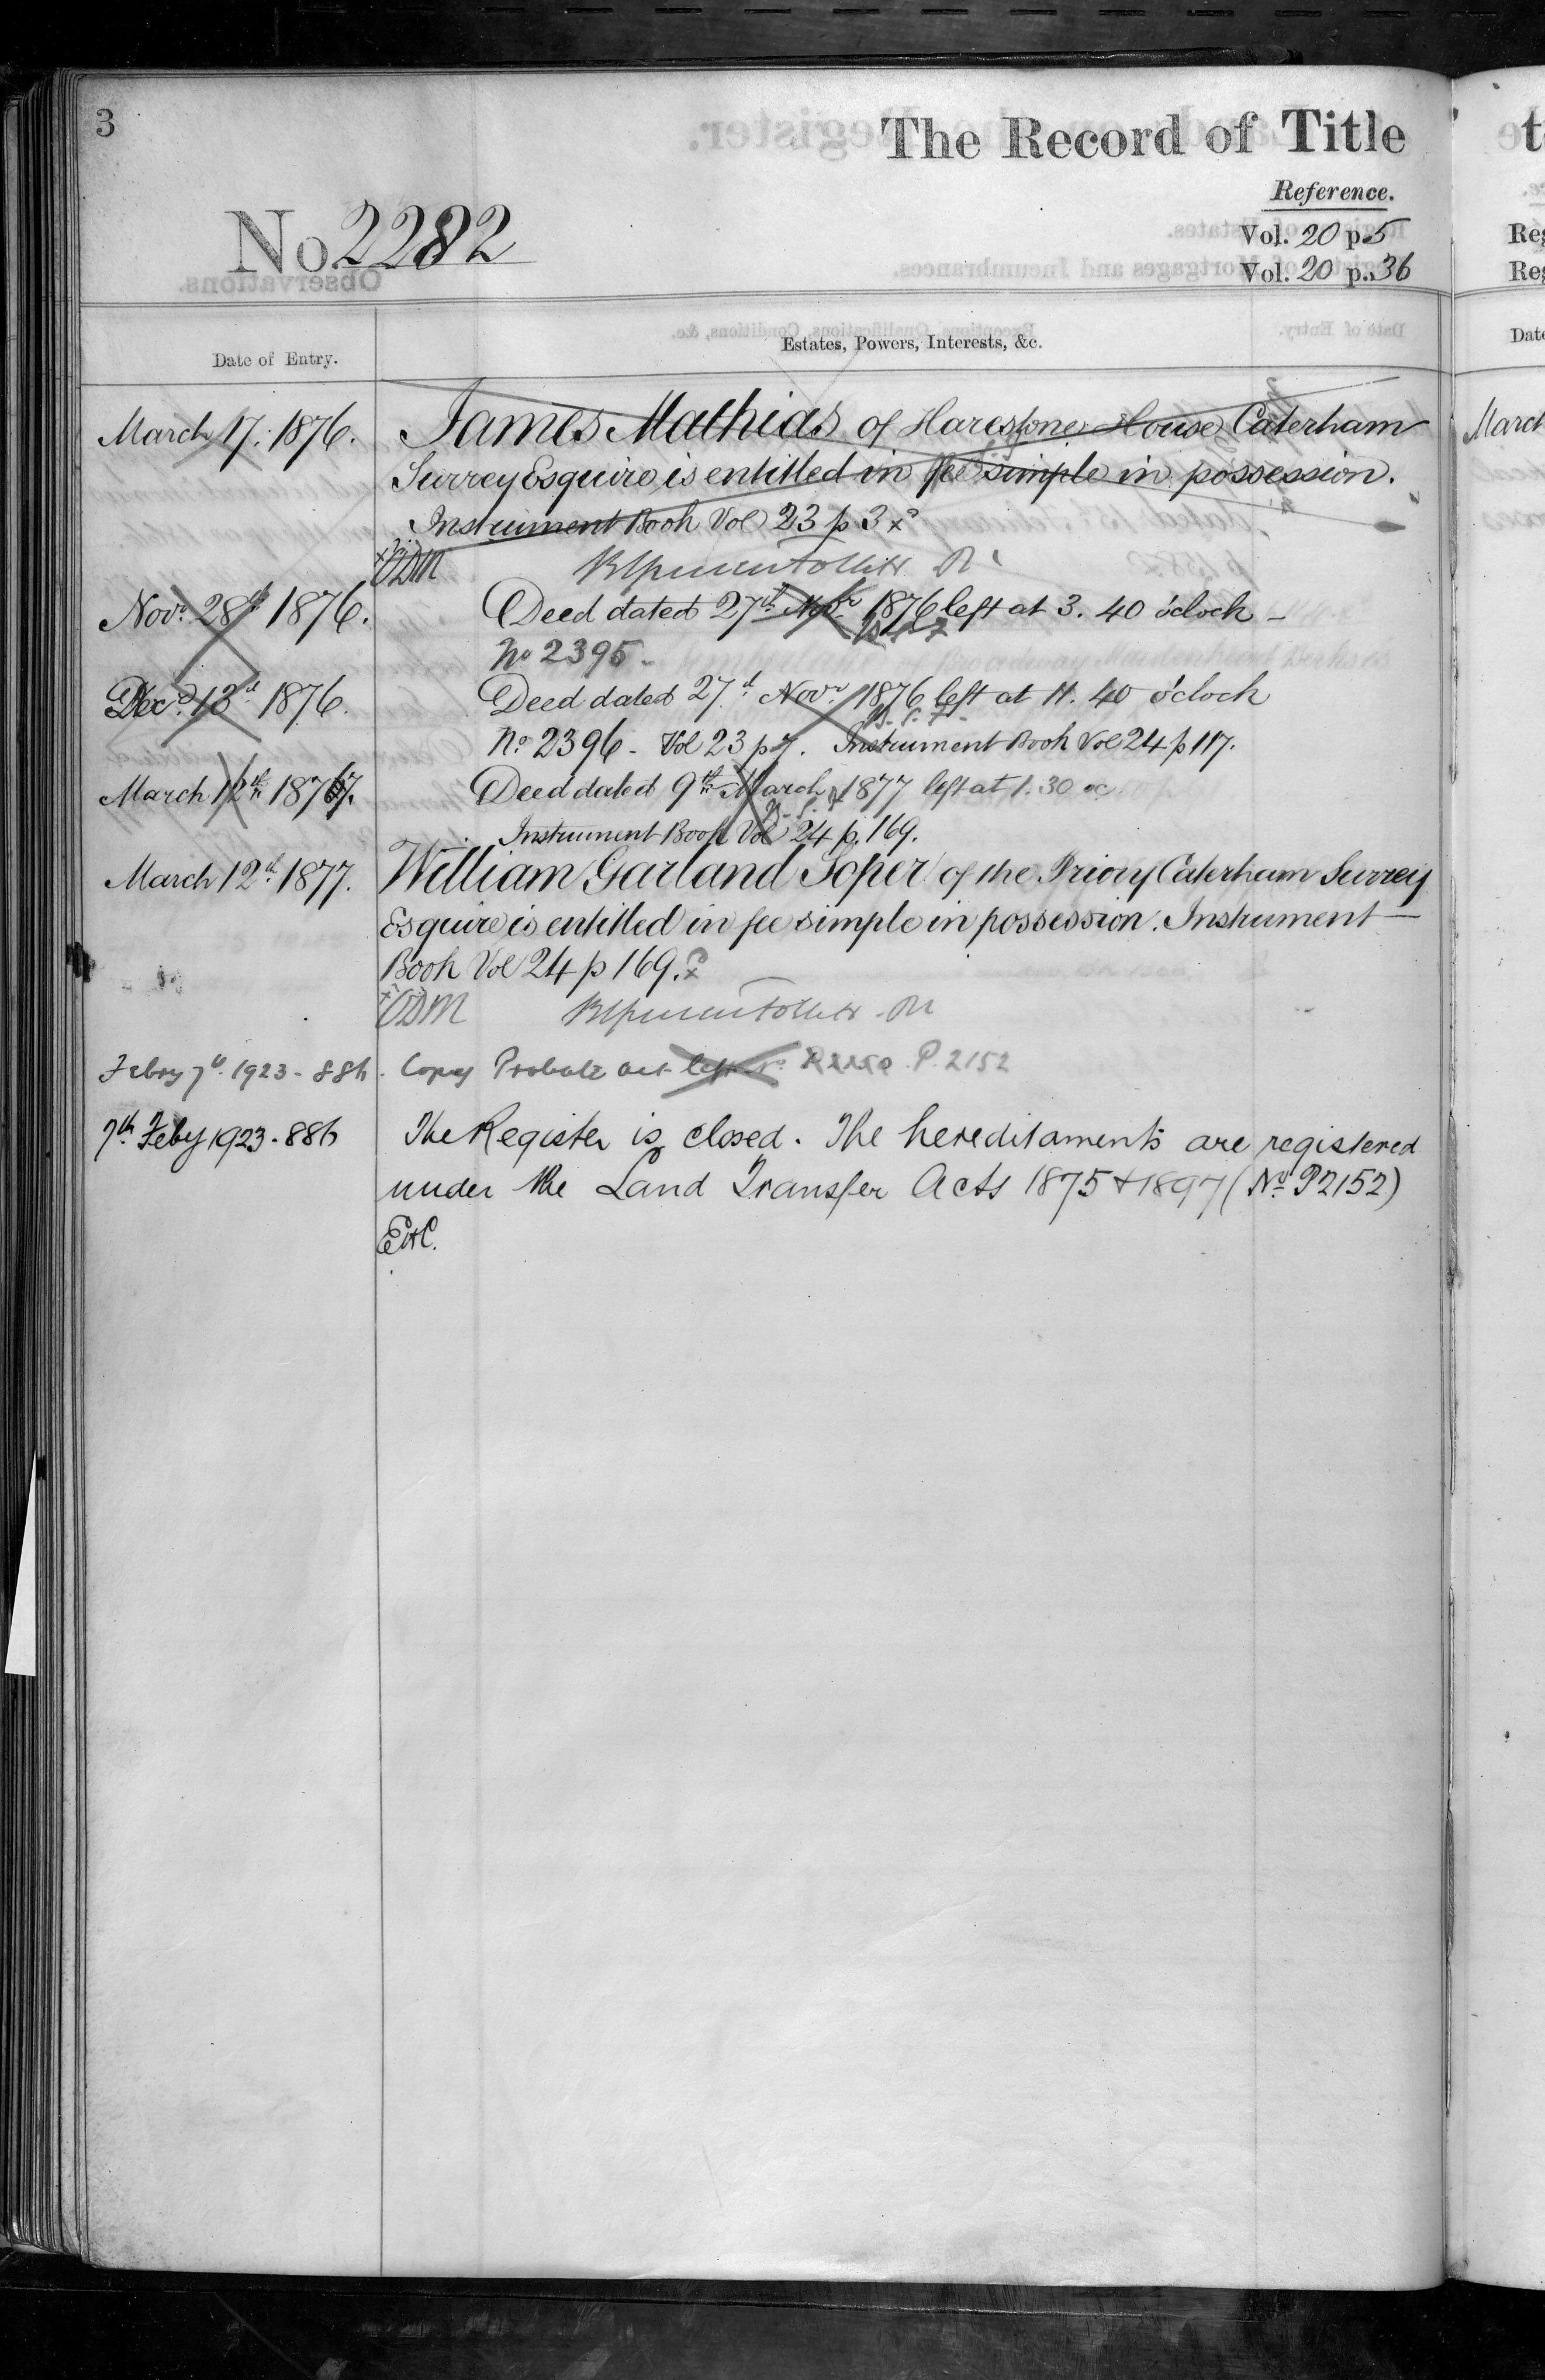 3
The Record of Title
Reference.
No. 2282
Vol. 20 p. 5
Vol. 20 p. 36
Date of Entry.
Estates, Powers, Interests, &c.
March 17. 1876.
James Mathias of Harestone House Caterham
Surrey Esquire is entitled in fee simple in possession.
Instrument Book Vol 23 p 3
ODM
Novr. 28th 1876.
Deed dated 27th Novr 1876 left at 3. 40 o'clock -
No 2395 -
Decr. 13th 1876.
Deed dated 27th Novr 1876 left at 11. 40 o'clock
No 2396 - Vol 23 p 7. Instrument Book Vol 24 p 117.
March 12th 1877.
Deed dated 9th March 1877 left at 1. 30 oc
Instrument Book Vol 24 p. 169.
March 12th 1877.
William Garland Soper of the Priory Caterham Surrey
Esquire is entitled in fee simple in possession. Instrument
Book Vol 24 p 169.
ODM
Febry 7th 1923 - 886.
Copy Probate act left No P. 2152
7th Feby 1923 - 886
The Register is closed. The hereditaments are registered
under the Land Transfer Acts 1875 + 1897 (No P2152)
Reg
Reg
Date
March